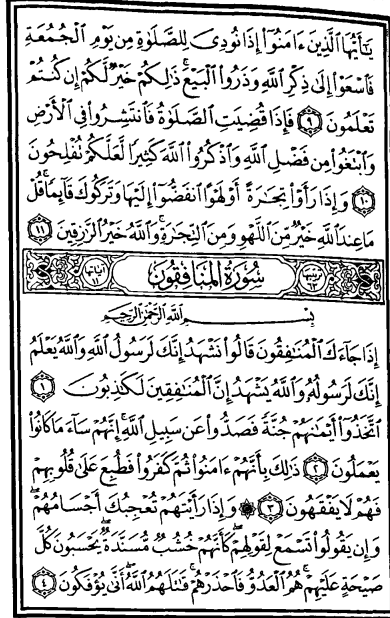 يَٰٓأَيُّهَا ٱلَّذِينَ ءَامَنُوٓا۟ إِذَا نُودِىَ لِلصَّلَوٰةِ مِن يَوْمِ ٱلْجُمُعَةِ
فَٱسْعَوْا۟ إِلَىٰ ذِكْرِ ٱللَّهِ وَذَرُوا۟ ٱلْبَيْعَ ۚ ذَٰلِكُمْ خَيْرٌ لَّكُمْ إِن كُنتُمْ
تَعْلَمُونَ ٩ فَإِذَا قُضِيَتِ ٱلصَّلَوٰةُ فَٱنتَشِرُوا۟ فِى ٱلْأَرْضِ
وَٱبْتَغُوا۟ مِن فَضْلِ ٱللَّهِ وَٱذْكُرُوا۟ ٱللَّهَ كَثِيرًا لَّعَلَّكُمْ تُفْلِحُونَ
١٠ وَإِذَا رَأَوْا۟ تِجَٰرَةً أَوْ لَهْوًا ٱنفَضُّوٓا۟ إِلَيْهَا وَتَرَكُوكَ قَآئِمًا ۚ قُلْ
مَا عِندَ ٱللَّهِ خَيْرٌ مِّنَ ٱللَّهْوِ وَمِنَ ٱلتِّجَٰرَةِ ۚ وَٱللَّهُ خَيْرُ ٱلرَّٰزِقِينَ ١١
ترتيبها ٦٣ سُورَةُ المُنَافِقُون آياتها ١١
بِسْمِ ٱللَّهِ ٱلرَّحْمَٰنِ ٱلرَّحِيمِ
إِذَا جَآءَكَ ٱلْمُنَٰفِقُونَ قَالُوا۟ نَشْهَدُ إِنَّكَ لَرَسُولُ ٱللَّهِ وَٱللَّهُ يَعْلَمُ
إِنَّكَ لَرَسُولُهُۥ وَٱللَّهُ يَشْهَدُ إِنَّ ٱلْمُنَٰفِقِينَ لَكَٰذِبُونَ ١
ٱتَّخَذُوٓا۟ أَيْمَٰنَهُمْ جُنَّةً فَصَدُّوا۟ عَن سَبِيلِ ٱللَّهِ ۚ إِنَّهُمْ سَآءَ مَا كَانُوا۟
يَعْمَلُونَ ٢ ذَٰلِكَ بِأَنَّهُمْ ءَامَنُوا۟ ثُمَّ كَفَرُوا۟ فَطُبِعَ عَلَىٰ قُلُوبِهِمْ
فَهُمْ لَا يَفْقَهُونَ ٣ ۞ وَإِذَا رَأَيْتَهُمْ تُعْجِبُكَ أَجْسَامُهُمْ ۖ
وَإِن يَقُولُوا۟ تَسْمَعْ لِقَوْلِهِمْ ۖ كَأَنَّهُمْ خُشُبٌ مُّسَنَّدَةٌ ۖ يَحْسَبُونَ كُلَّ
صَيْحَةٍ عَلَيْهِمْ ۚ هُمُ ٱلْعَدُوُّ فَٱحْذَرْهُمْ ۚ قَٰتَلَهُمُ ٱللَّهُ ۖ أَنَّىٰ يُؤْفَكُونَ ٤